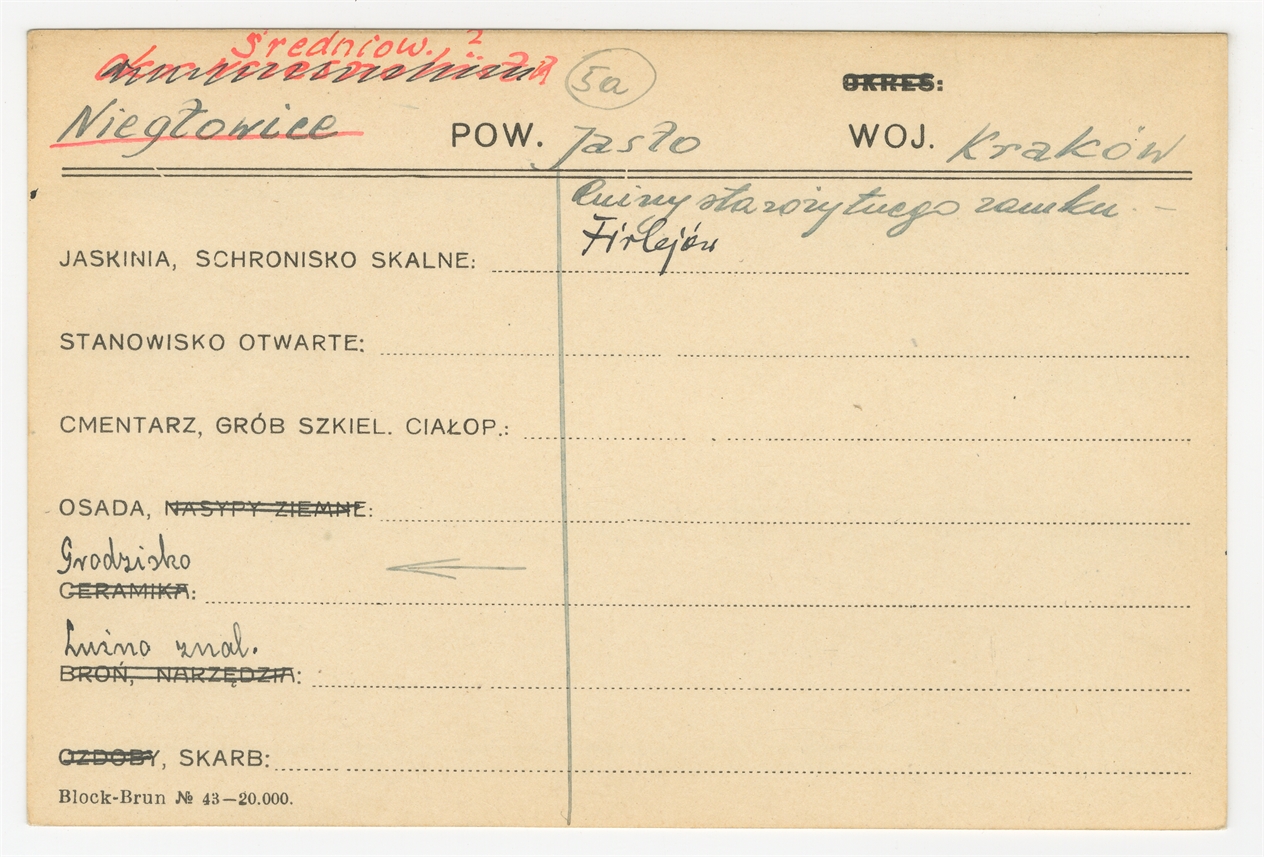 średniow. ?
5a
OKRES:
Niegłowice POW. Jasło WOJ. Kraków
ruiny starożytnego zamku –
Firlejów
JASKINIA, SCHRONISKO SKALNE:
STANOWISKO OTWARTE:
CMENTARZ, GRÓB SZKIEL. CIAŁOP.:
OSADA, NASYPY ZIEMNE:
Grodzisko
CERAMIKA:
Luźno znal.
BROŃ, NARZĘDZIA:
OZDOBY, SKARB:
Block-Brun № 43—20.000.